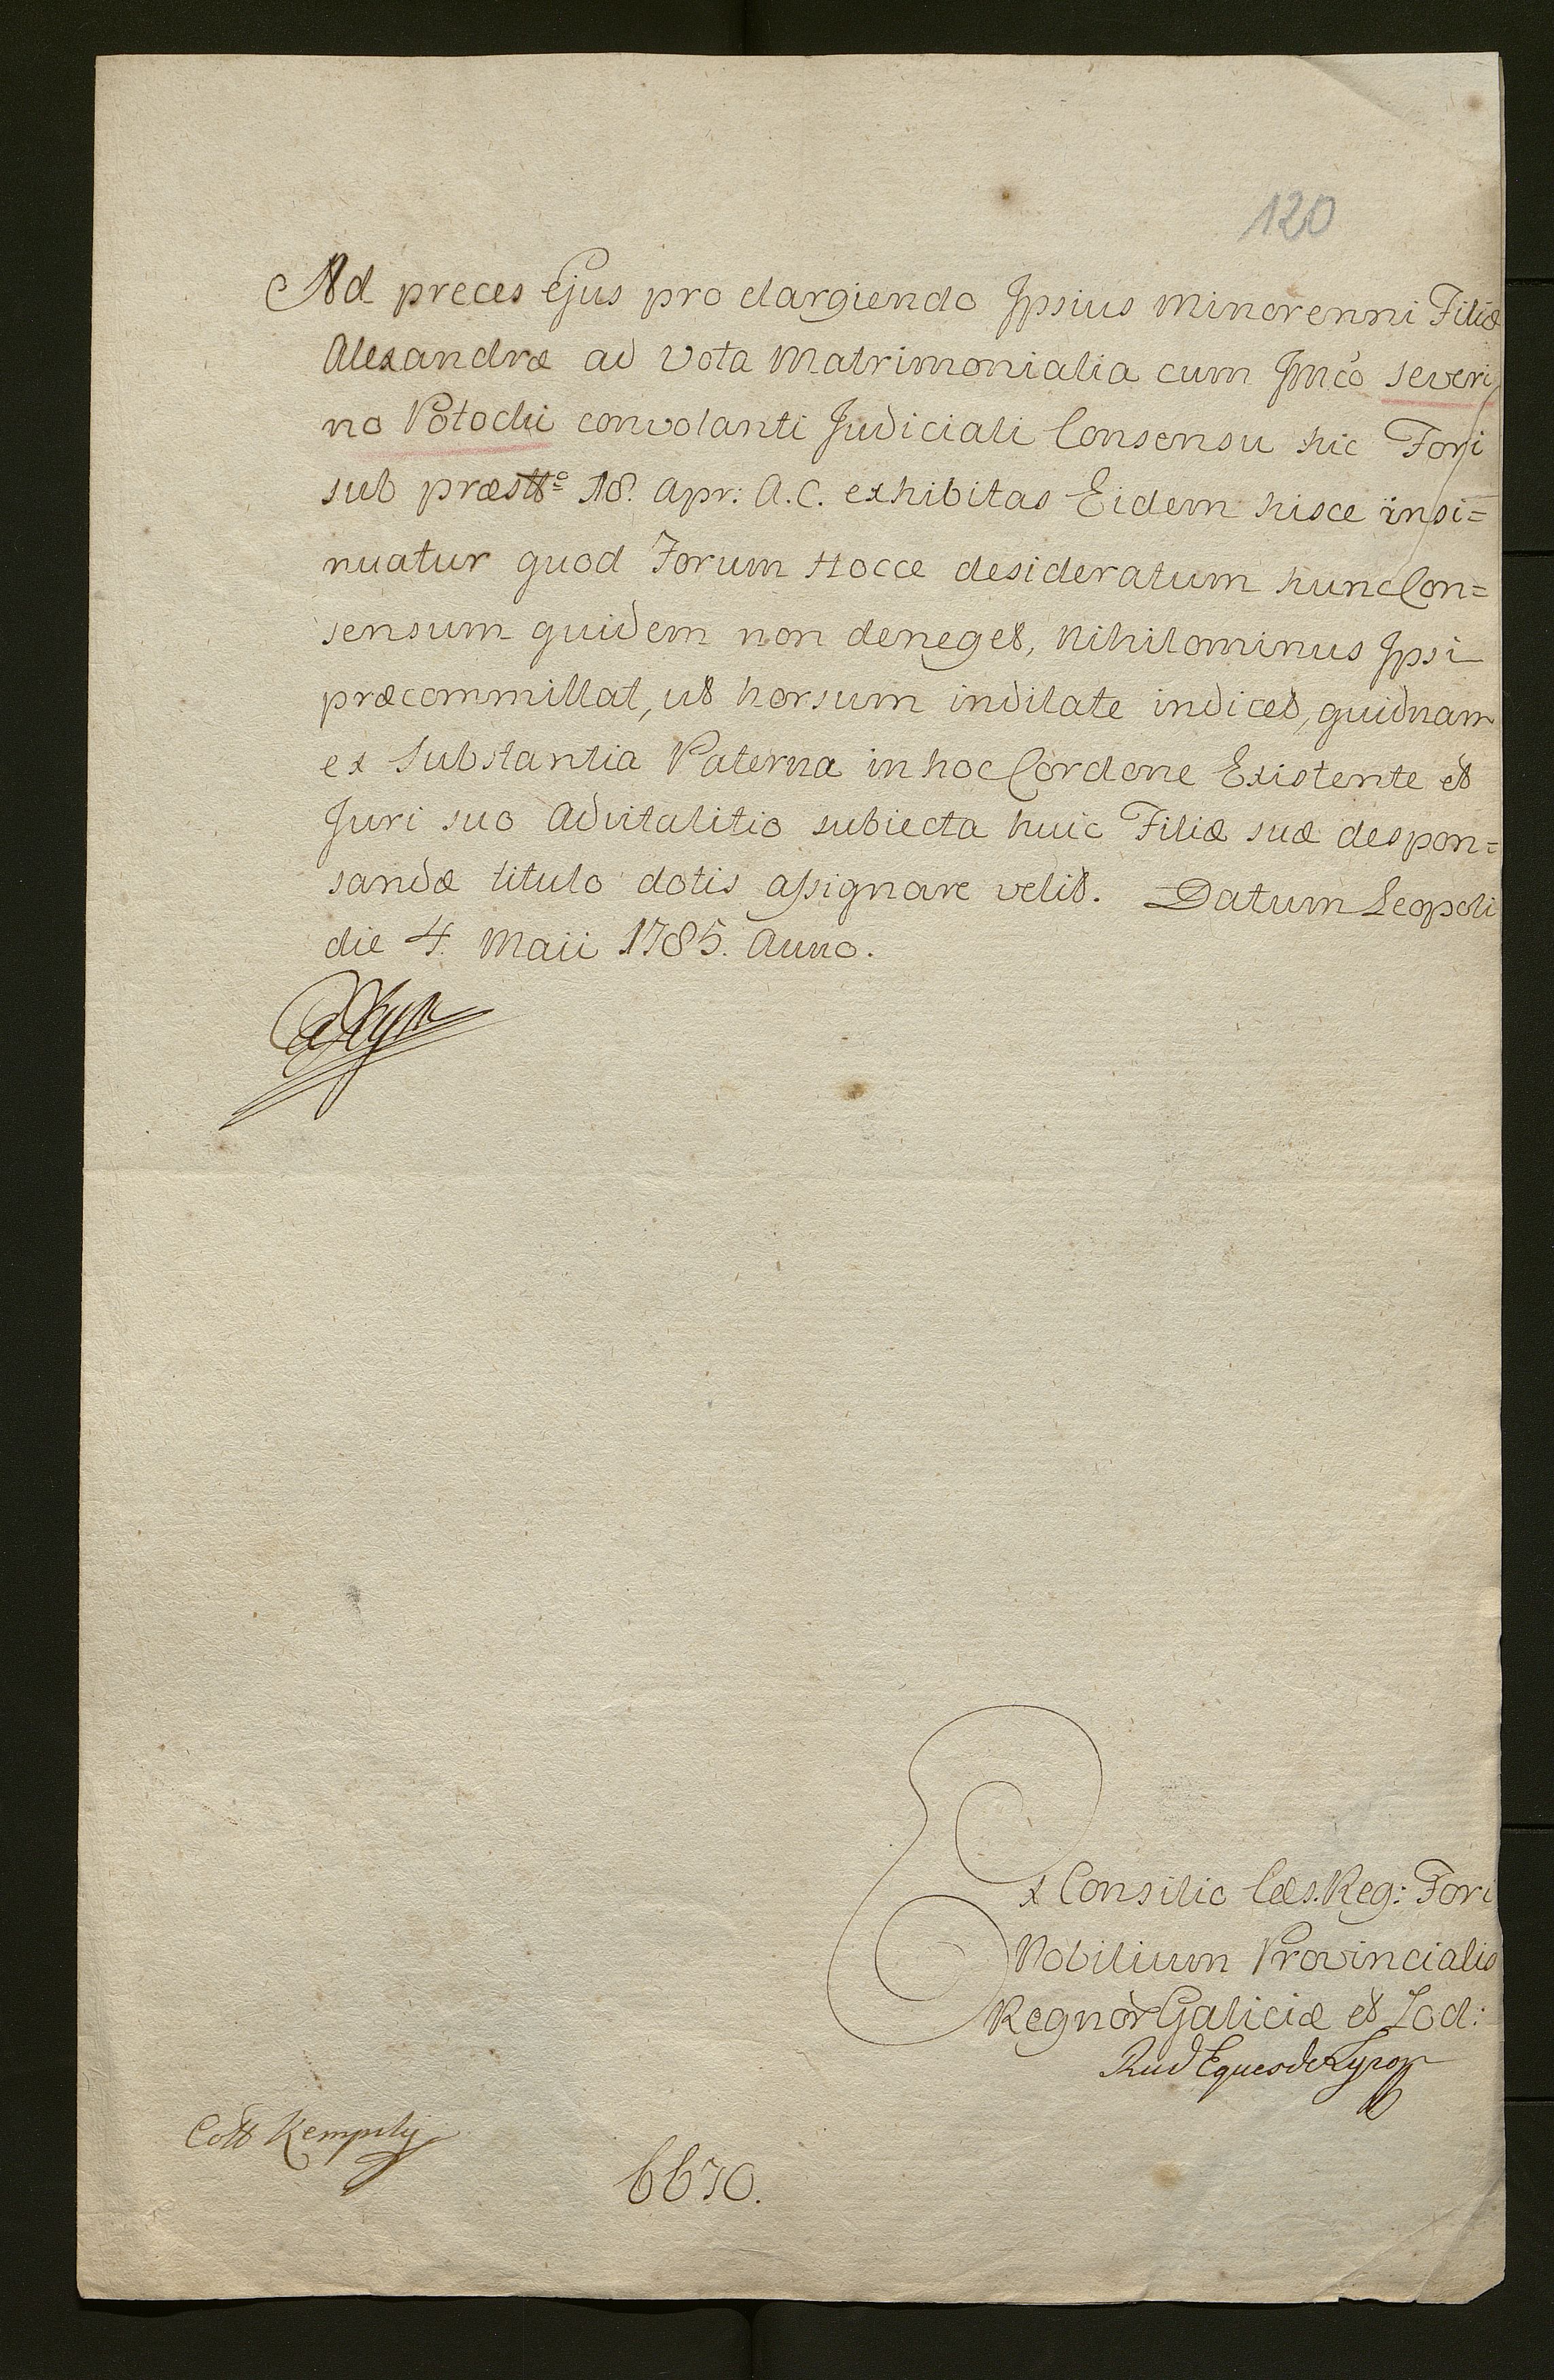 120
Ad preces Ejus pro elargiendo Ipsius Minorenni Filiæ
Alexandræ ad Vota Matrimonialia cum Jmco Severi
no Potocki convolanti Judiciali Consensu hic Fori
sub præstto 18. Apr: A.C. exhibitas Eidem hisce insi=
nuatur quod Forum Hocce desideratum hunc Con=
sensum quidem non deneget, Nihilominus Ipsi
præcommittat, ut horsum indilate indicet, quidnam
ex Substantia Paterna in hoc Cordone Existente et
Juri suo Advitalitio subiecta huic Filiæ suæ despon=
sandæ titulo dotis assignare velit. Datum Leopoli
die 4. Maii 1785. Anno.
Ex Consilio Cæs. Reg: Fori
Nobilium Provincialis
Regnor Galiciæ et Lod:
Rud Eques de
6670.